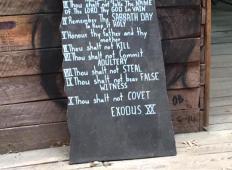 Thou shalt not take THE NAME
OF THE LORD THY GOD IN VAIN
IV Remember Thy SABBATH DAY
To Keep it HOLY
V Honour thy father and thy
mother
VI Thou shalt not KILL
VII Thou shalt not Commit
ADULTERY
VIII Thou shalt not STEAL
IX Thou shalt not bear FALSE
WITNESS
X Thou shalt not COVET
EXODUS XX